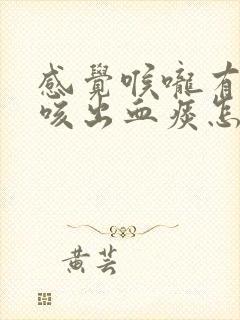 感覺喉嚨有
咳出血痰怎
黃芸